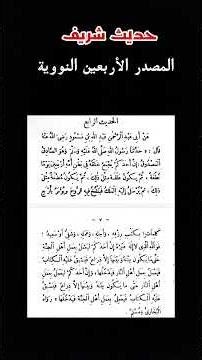 حديث شريف
المصدر الأربعين النووية
الحديث الرابع
عن أبي عبد الرحمن عبد الله بن مسعود رضي الله عنه
قال : حدثنا رسول الله صلى الله عليه وسلم ، وهو الصادق
المصدوق : إن أحدكم يجمع خلقه في بطن أمه أربعين يوما
نطفة ، ثم يكون علقة مثل ذلك ، ثم يكون مضغة مثل
ذلك ، ثم يرسل إليه الملك فينفخ فيه الروح ويؤمر بأربع
- ٧ -
كلمات: بكتب رزقه ، وأجله ، وعمله ، وشقي أو سعيد ؛
فوالله الذي لا إله غيره إن أحدكم ليعمل بعمل أهل الجنة
حتى ما يكون بينه وبينها إلا ذراع فيسبق عليه الكتاب
فيعمل بعمل أهل النار فيدخلها ، وإن أحدكم ليعمل بعمل
أهل النار حتى ما يكون بينه وبينها إلا ذراع فيسبق عليه
الكتاب فيعمل بعمل أهل الجنة فيدخلها ، رواه
البخاري ومسلم